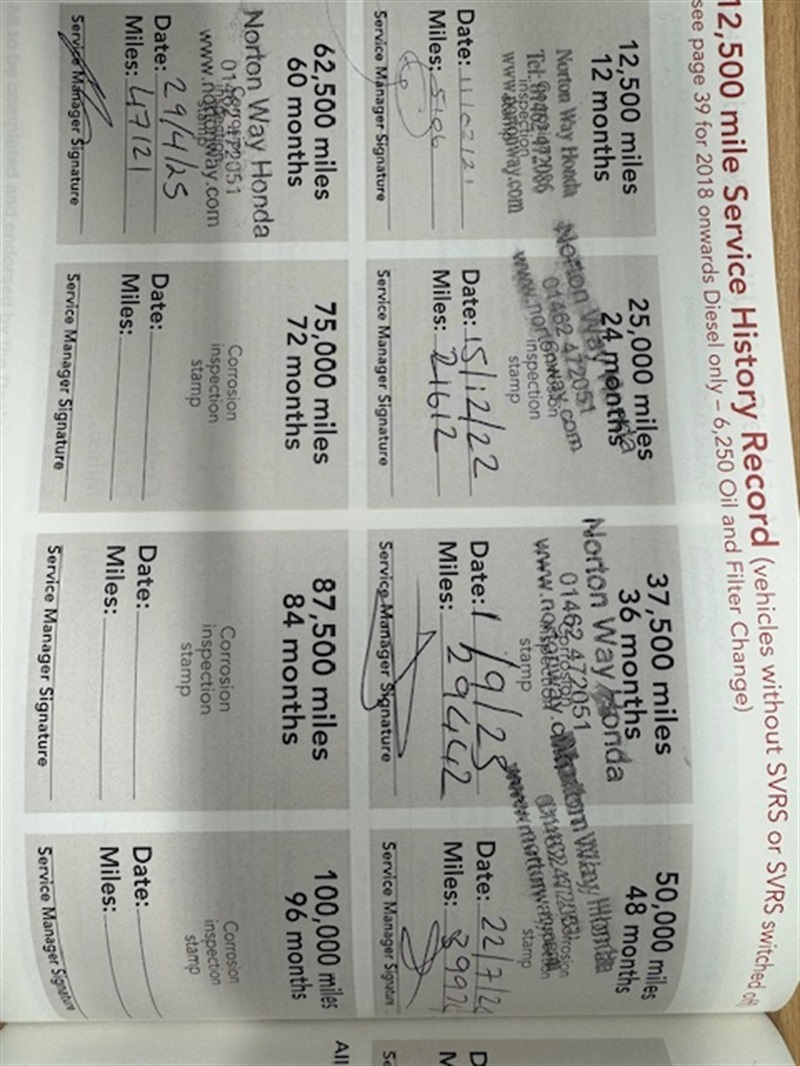 12,500 mile Service History Record (vehicles without SVRS or SVRS switched off
see page 39 for 2018 onwards Diesel only – 6,250 Oil and Filter Change)
12,500 miles
12 months
Norton Way Honda
Tel: 01462 472086
inspection
www.nortonway.com
Date:
Miles:
Service Manager Signature
25,000 miles
24 months
Norton Way Honda
01462 472051
www.nortonway.com
inspection
stamp
Date: 15/12/22
Miles: 21612
Service Manager Signature
37,500 miles
36 months
Norton Way Honda
01462 472051
Corrosion
inspection
stamp
Date: 1/9/23
Miles: 29442
Service Manager Signature
50,000 miles
48 months
stamp
Date: 22/7/24
Miles:
Service Manager Signature
62,500 miles
60 months
Norton Way Honda
01462 472051
www.nortonway.com
Date: 29/4/25
Miles: 47121
Service Manager Signature
75,000 miles
72 months
Corrosion
inspection
stamp
Date:
Miles:
Service Manager Signature
87,500 miles
84 months
Corrosion
inspection
stamp
Date:
Miles:
Service Manager Signature
100,000 miles
96 months
Corrosion
inspection
stamp
Date:
Miles:
Service Manager Signature
All